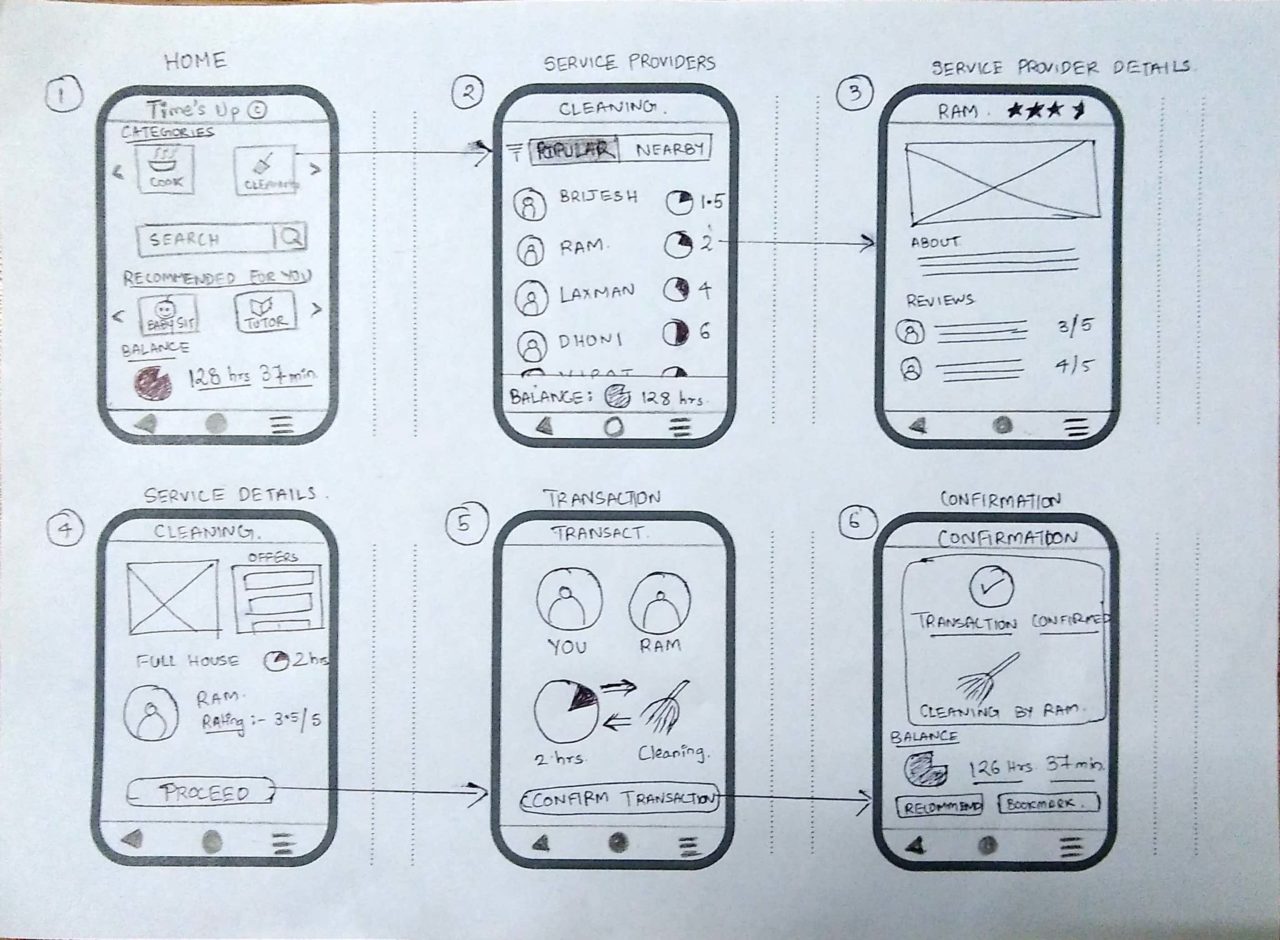 HOME
1
Time's Up ©
CATEGORIES
<
COOK
CLEANING
>
SEARCH
RECOMMENDED FOR YOU
<
BABY SIT
TUTOR
>
BALANCE
128 hrs 37 min.
SERVICE PROVIDERS
2
CLEANING.
POPULAR NEARBY
BRIJESH 1.5
RAM. 2
LAXMAN 4
DHONI 6
VIRAT
BALANCE: 128 hrs.
SERVICE PROVIDER DETAILS.
3
RAM. ★★★
ABOUT
REVIEWS
3/5
4/5
SERVICE DETAILS.
4
CLEANING.
OFFERS
FULL HOUSE 2 hrs
RAM.
Rating :- 3.5/5
PROCEED
TRANSACTION
5
TRANSACT.
YOU RAM
2 hrs. Cleaning.
CONFIRM TRANSACTION
CONFIRMATION
6
CONFIRMATION
TRANSACTION CONFIRMED
CLEANING BY RAM.
BALANCE
126 Hrs 37 min.
RECOMMEND BOOKMARK.